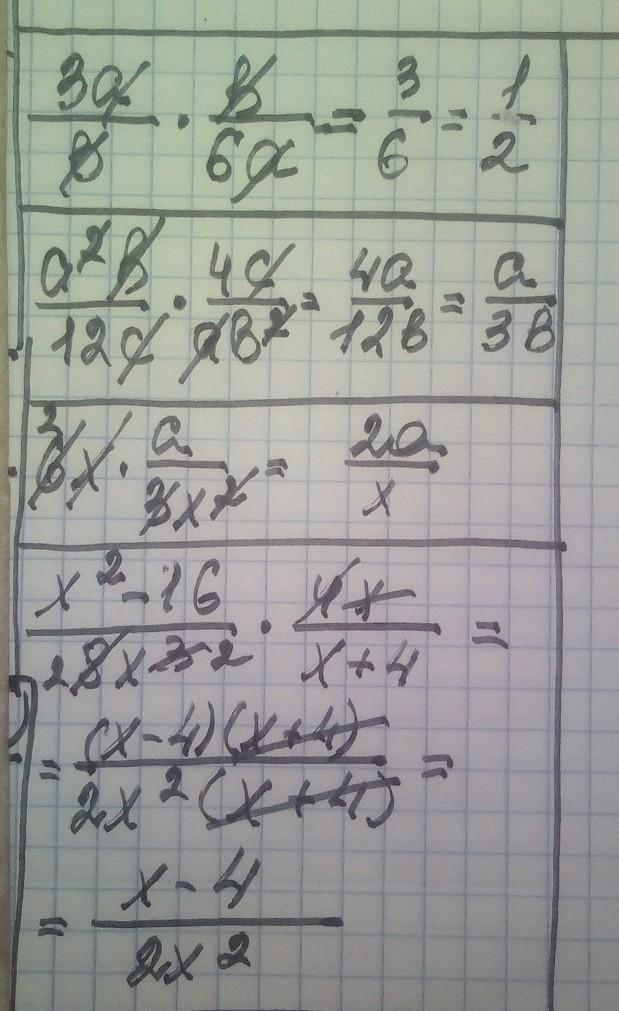 3a/b · b/6a = 3/6 = 1/2
a²b/12c · 4c/ab² = 4a/12b = a/3b
2 6x · a/3x² = 2a/x
x²-16/2 8x3 2 · 4x/x+4 =
= (x-4)(x+4)/2x²(x+4) =
= x-4/2x2